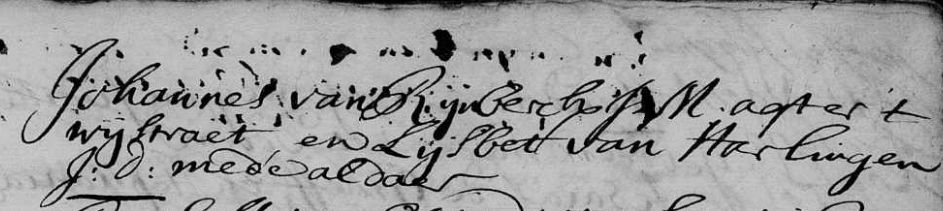 Johannes van Rijnberch J M. agter t
wijstraet, en Lijsbet van Harlingen
J: d: mede aldaer